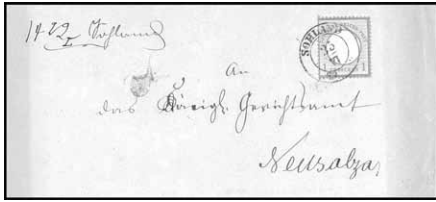 Sohland
SOHLAND
1
An
das Königl. Gerichtsamt
Neusalza